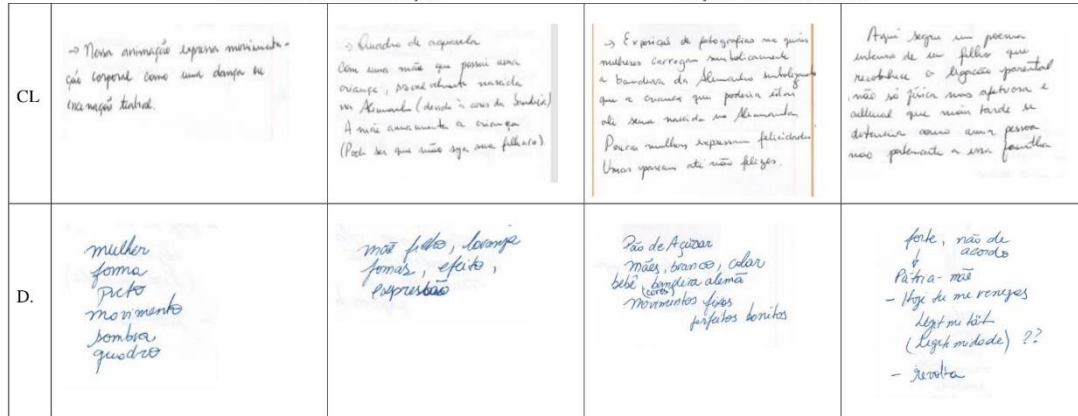 CL
→ Nossa animação expressa movimenta-
ção corporal como uma dança ou
encenação teatral.
→ Quadro de aquarela
Com uma mãe que possui uma
criança, possivelmente nascida
na Alemanha (devido à cores da bandeira)
A mãe amamenta a criança
(Pode ser que não seja sua filha/o)
→ Exposição de fotografias na quais
mulheres carregam simbolicamente
a bandeira da Alemanha simbolizando
que a criança que poderia estar
ali seria nascida na Alemanha
Poucas mulheres expressam felicidade
Umas parecem até não felizes.
Aqui segue um poema
intenso de um filho que
reconhece a ligação parental
não só física mas afetuosa e
cultural que mais tarde se
distancia como uma pessoa
não pertencente a essa família
D.
mulher
forma
preto
movimento
sombra
quadro
mãe filho, laranja
formas, efeito,
expressão
Pão de Açúcar
mães, branco, colar
bebê, bandeira alemã
(cores)
movimentos fixos
perfeitos bonitos
forte, não de
acordo
↓
Pátria-mãe
- Hoje tu me renegas
Legitimität
(Legitimidade) ??
- revolta